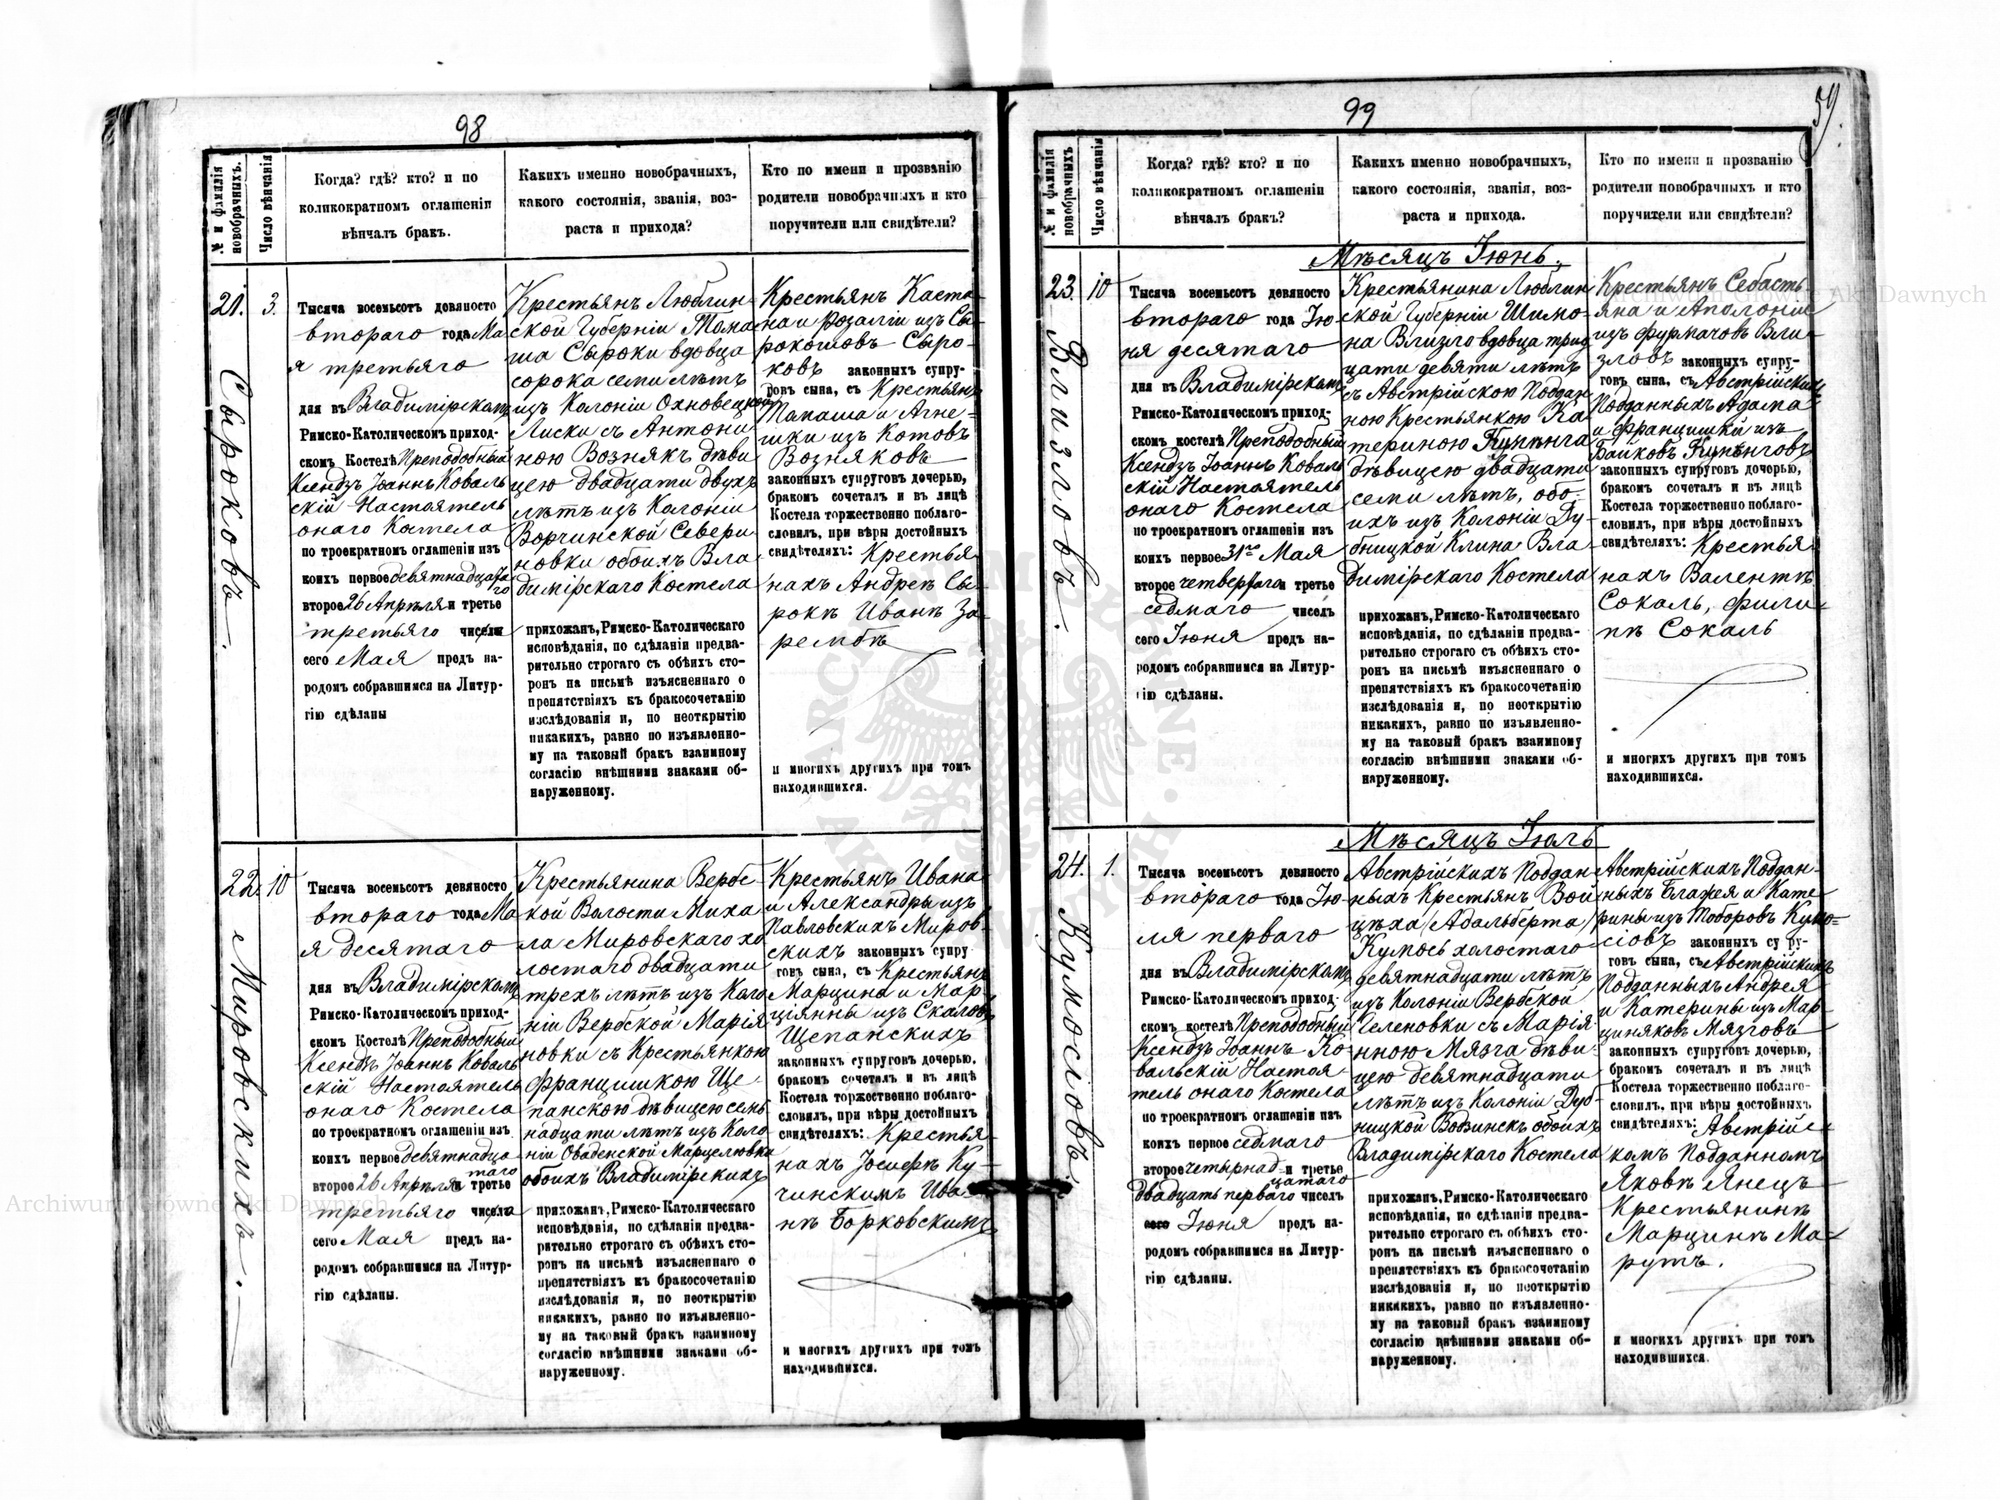 98
№ и фамилія новобрачныхъ.
Число вѣнчанія
Когда? гдѣ? кто? и по
коликократномъ оглашеніи
вѣнчалъ бракъ.
Какихъ именно новобрачныхъ,
какого состоянія, званія, воз-
раста и прихода?
Кто по имени и прозванію
родители новобрачныхъ и кто
поручители или свидѣтели?
21.
Сыроковъ.
3.
Тысяча восемьсот девяносто
втораго года Ма
я третьяго
дня въ Владимірскомъ
Римско-Католическомъ приход-
скомъ Костелѣ Преподобный
Ксендзъ Іоаннъ Коваль
скій Настоятель
онаго Костела
по троекратномъ оглашеніи изъ
коихъ первое девятнадцата
го
второе 26 Апрѣля и третье
третьяго числа
сего Мая предъ на-
родомъ собравшимся на Литур-
гію сдѣланы
Крестьянъ Люблин-
ской Губерніи Тома
ша Сыроки вдовца
сорока семи лѣтъ
изъ Колоніи Охновецкой
Лиски съ Антони
ною Вознякъ дѣви
цею двадцати двухъ
лѣтъ изъ Колоніи
Ворчинской Севери
новки обоихъ Вла
димірскаго Костела
прихожанъ, Римско-Католическаго
исповѣданія, по сдѣланіи предва-
рительно строгаго съ обѣихъ сто-
ронъ на письмѣ изъясненнаго о
препятствіяхъ къ бракосочетанію
изслѣдованія и, по неоткрытію
никакихъ, равно по изъявленно-
му на таковый бракъ взаимному
согласію внѣшними знаками об-
наруженному.
Крестьянъ Каета
на и Розаліи изъ Сы
рокошовъ Сыро-
ковъ законныхъ супру-
говъ сына, съ Крестьянъ
Томаша и Агне-
шки изъ Котовъ
Возняковъ
законныхъ супруговъ дочерью,
бракомъ сочеталъ и въ лицѣ
Костела торжественно поблаго-
словилъ, при вѣры достойныхъ
свидѣтеляхъ: Крестья
нахъ Андреѣ Сы
рокѣ Иванѣ За
рембѣ
и многихъ другихъ при томъ
находившихся.
22.
Мировскихъ.
10
Тысяча восемьсот девяносто
втораго года Ма
я десятаго
дня въ Владимірскомъ
Римско-Католическомъ приход-
скомъ Костелѣ Преподобный
Ксендзъ Іоаннъ Коваль
скій Настоятель
онаго Костела
по троекратномъ оглашеніи изъ
коихъ первое девятнадца
таго
второе 26 Апрѣля и третье
третьяго числа
сего Мая предъ на-
родомъ собравшимся на Литур-
гію сдѣланы.
Крестьянина Вербс-
кой Волости Миха
ла Мировскаго хо
лостаго двадцати
трехъ лѣтъ изъ Коло
ніи Вербской Марія
новки съ Крестьянкою
Францишкою Ще
панскою дѣвицею семь
надцати лѣтъ изъ Коло
ніи Оваденской Марцелювки
обоихъ Владимірскихъ
прихожанъ, Римско-Католическаго
исповѣданія, по сдѣланіи предва-
рительно строгаго съ обѣихъ сто-
ронъ на письмѣ изъясненнаго о
препятствіяхъ къ бракосочетанію
изслѣдованія и, по неоткрытію
никакихъ, равно по изъявленно-
му на таковый бракъ взаимному
согласію внѣшними знаками об-
наруженному.
Крестьянъ Ивана
и Александры изъ
Павловскихъ Миров-
скихъ законныхъ супру
говъ сына, съ Крестьянъ
Марцина и Мар-
ціянны изъ Скаловъ
Щепанскихъ
законныхъ супруговъ дочерью,
бракомъ сочеталъ и въ лицѣ
Костела торжественно поблаго-
словилъ, при вѣры достойныхъ
свидѣтеляхъ: Крестья
нахъ Іосифѣ Ку-
чинскимъ Ива
нѣ Борковскимъ
и многихъ другихъ при томъ
находившихся.
99
59.
№ и фамилія новобрачныхъ
Число вѣнчанія
Когда? гдѣ? кто? и по
коликократномъ оглашеніи
вѣнчалъ бракъ?
Какихъ именно новобрачныхъ,
какого состоянія, званія, воз-
раста и прихода.
Кто по имени и прозванію
родители новобрачныхъ и кто
поручители или свидѣтели?
Мѣсяцъ Іюнь.
23.
Влизловъ.
10
Тысяча восемьсот девяносто
втораго года Ію
ня десятаго
дня въ Владимірскомъ
Римско-Католическомъ приход-
скомъ костелѣ Преподобный
Ксендзъ Іоаннъ Коваль
скій Настоятель
онаго Костела
по троекратномъ оглашеніи изъ
коихъ первое 31го Мая
второе четвертаго и третье
седмаго чиселъ
сего Іюня предъ на-
родомъ собравшимся на Литур-
гію сдѣланы.
Крестьянина Люблин
ской Губерніи Шимо
на Влизло вдовца трид
цати девяти лѣтъ
съ Австрійскою Поддан
ною Крестьянкою Ка
териною
дѣвицею двадцати
семи лѣтъ, обо-
ихъ изъ Колоніи Ду
бницкой Клина Вла
димірскаго Костела
прихожанъ, Римско-Католическаго
исповѣданія, по сдѣланіи предва-
рительно строгаго съ обѣихъ сто-
ронъ на письмѣ изъясненнаго о
препятствіяхъ къ бракосочетанію
изслѣдованія и, по неоткрытію
никакихъ, равно по изъявленно-
му на таковый бракъ взаимному
согласію внѣшними знаками об-
наруженному.
Крестьянъ Себасть
яна и Аполоніи
изъ Фурмаговъ Вли
зловъ законныхъ супру-
говъ сына, съ Австрійскихъ
Подданныхъ Адама
и Францишки изъ
Байковъ
законныхъ супруговъ дочерью,
бракомъ сочеталъ и въ лицѣ
Костела торжественно поблаго-
словилъ, при вѣры достойныхъ
свидѣтеляхъ: Крестья
нахъ Валентѣ
Сокаль, Фили
пѣ Сокаль
и многихъ другихъ при томъ
находившихся.
Мѣсяцъ Іюль
24.
Кумосіовъ
1.
Тысяча восемьсот девяносто
втораго года Ію-
ля перваго
дня въ Владимірскомъ
Римско-Католическомъ приход-
скомъ костелѣ Преподобный
Ксендзъ Іоаннъ Ко-
вальскій Настоя
тель онаго Костела
по троекратномъ оглашеніи изъ
коихъ первое седмаго
второе четырнад и третье
цатаго
двадцать перваго чиселъ
сего Іюня предъ на-
родомъ собравшимся на Литур-
гію сдѣланы.
Австрійскихъ Поддан
ныхъ Крестьянъ Вой
цѣха (Адальберта)
Кумось холостаго
девятнадцати лѣтъ
изъ Колоніи Вербской
Геленовки съ Марія
нною Мязга дѣви
цею девятнадцати
лѣтъ изъ Колоніи Дуб-
ницкой Водзинскъ обоихъ
Владимірскаго Костела
прихожанъ, Римско-Католическаго
исповѣданія, по сдѣланіи предва-
рительно строгаго съ обѣихъ сто-
ронъ на письмѣ изъясненнаго о
препятствіяхъ къ бракосочетанію
изслѣдованія и, по неоткрытію
никакихъ, равно по изъявленно-
му на таковый бракъ взаимному
согласію внѣшними знаками об-
наруженному.
Австрійскихъ Поддан-
ныхъ Блажея и Кате-
рины изъ Тоборовъ Кумо-
сіовъ законныхъ супру-
говъ сына, съ Австрійскихъ
Подданныхъ Андрея
и Катерины изъ Мар-
циняковъ Мязговъ
законныхъ супруговъ дочерью,
бракомъ сочеталъ и въ лицѣ
Костела торжественно поблаго-
словилъ, при вѣры достойныхъ
свидѣтеляхъ: Австрійс-
комъ Подданномъ
Яковѣ Янецъ
Крестьянинѣ
Марцинѣ Ма-
рутъ.
и многихъ другихъ при томъ
находившихся.
Archiwum Główne Akt Dawnych
Archiwum Główne Akt Dawnych